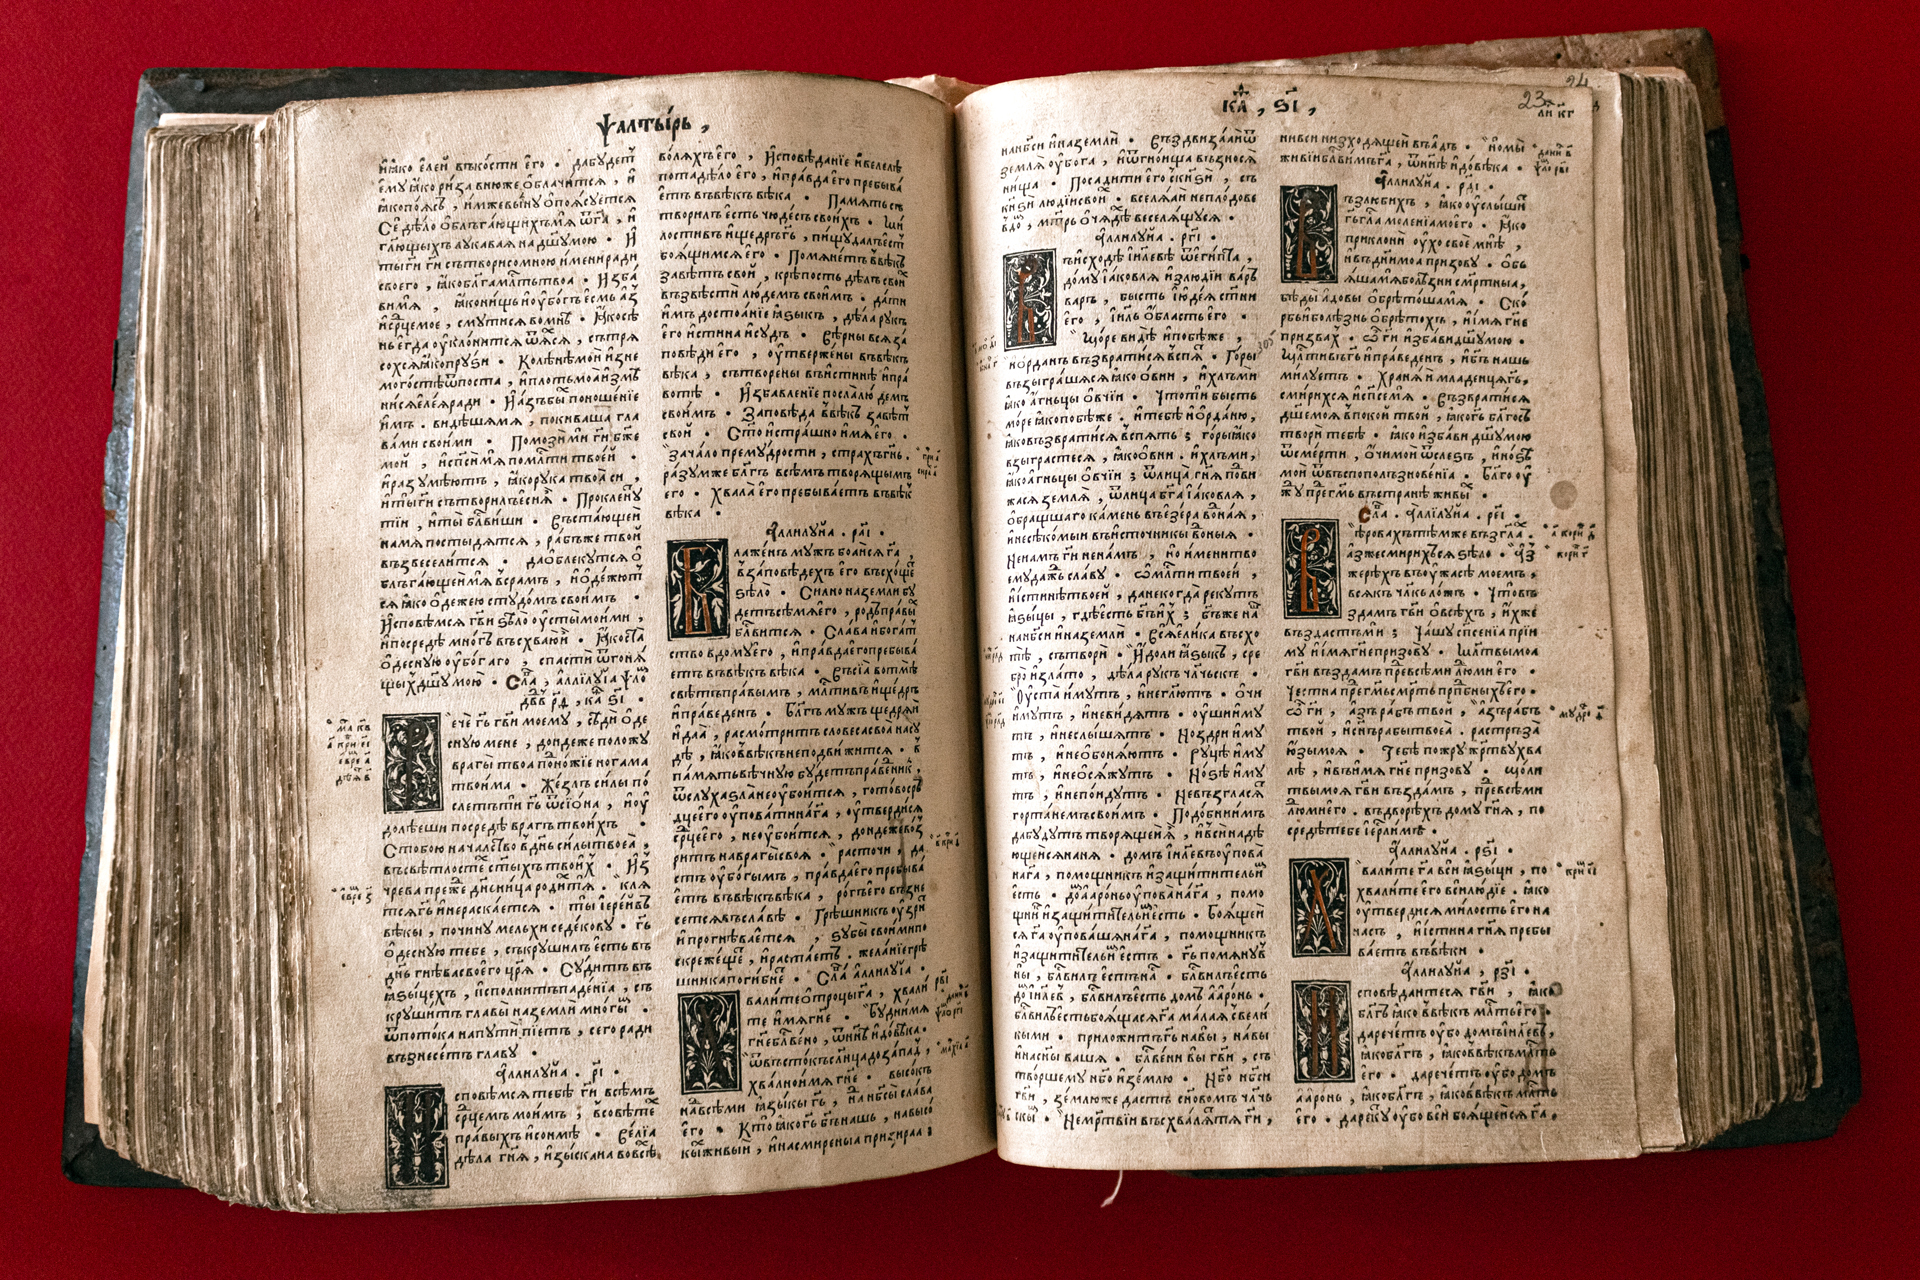 Ѱалты́рь ,
ꙗ҆́ко є҆ле́й въко́сти є҆го̀ • дабу́детъ
є҆му̀ ꙗ҆́ко ри́за внюже ѻ҆блачи́тсѧ , и҆
ꙗ҆́ко по́ѧсъ , и҆мже вы́ну ѻ҆поѧ́суетсѧ
Сѐ дѣ́ло ѻ҆болга́ющихъ мѧ̀ ѿ га҃ , и҆
гл҃ющыхъ лука́ваѧ на дш҃у мою̀ • И҆
ты̀ гй҃ гй҃ сътвори́ со мно́ю и҆́мени ра́ди
своего̀ , ꙗ҆́ко бл҃га́ мл҃ть твоа̀ • И҆зба́
ви мѧ̀ , ꙗ҆́ко ни́щь и҆ ѹ҆бо́гъ є҆́смь а҆́зъ
и҆ ср҃це моѐ , смути́сѧ во мнѣ̀ • Ꙗ҆́ко сѣ́
нь є҆гда̀ ѹ҆клони́тсѧ ѿѧ́хсѧ , сътрѧ
сохсѧ ꙗ҆́ко прꙋ́ѕи • Колѣ́нѣ мои҆ и҆знє
мого́стѣ ѿ поста̀ , и҆ пло́ть моа̀ и҆змѣ
ни́сѧ є҆ле́ѧ ра́ди • И҆ а҆́зъ бы́хъ поноше́нїе
и҆́мъ . ви́дѣша мѧ̀ , покива́ша гла
ва́ми свои́ми • Помози́ ми гй҃ бж҃е
мой , и҆ сп҃си́ мѧ по мл҃ти твое́й •
и҆ разꙋмѣ́ютъ , ꙗ҆́ко рука̀ твоа̀ си ,
и҆ ты̀ гй҃ сътвори́лъ є҆сѝ ѧ • Прокленꙋ́
ті́и , и҆ ты̀ бл҃ви́ши • Въстаю́щеи
на мѧ̀ постыдѧ́тсѧ , ра́бъ же твой
възвесели́тсѧ • да ѻ҆блекꙋ́тсѧ ѻ҆
бълга́ющеи мѧ̀ в срамъ , и҆ ѻ҆де́жютъ
сѧ ꙗ҆́ко ѻ҆де́жею стꙋдо́мъ свои́мъ •
И҆сповѣ́мсѧ гв҃и ѕѣло̀ ѹ҆сты̀ мои́ми ,
и҆ посредѣ̀ мно́гъ въсхвалю̀ и҆̀ • Ꙗ҆́ко ста̀
ѻ҆деснꙋ́ю ѹ҆бо́гаго , спастѝ ѿ гонѧ́
щыхъ дш҃у мою̀ • Сла́ , а҆ллилꙋ́їа ѱло́
дв҃в рд , ка ѕі •
Речѐ гъ҃ гв҃и моемꙋ̀ , сѣдѝ ѻ҆де
сную менѐ , до́ндеже положꙋ̀
врагѝ твоа̀ поно́жїе нога́ма
твои́ма • Же́злъ си́лы по́
слетъ ти гъ҃ ѿ сїо́на , и҆ ѹ҆
долѣе́ши посредѣ̀ вра́гъ твои́хъ •
С тобо́ю нача́лство в дн҃ь си́лы твоеа̀ ,
въ свѣ́тлостє ст҃ыхъ твои́хъ • И҆з
чре́ва пре́же дн҃и́ца роди́хъ тѧ̀ • клѧ
тсѧ гъ҃ и҆ нераска́етсѧ • ты̀ і҆ере́й въ
вѣ́кы , по чи́ну мелхи́седе́кову • гъ҃
ѻ҆десну́ю тебѐ , съкруши́лъ є҆́сть въ
дн҃ь гнѣ́ва своего̀ цр҃ѧ • Су́дитъ въ
ꙗ҆зы́цехъ , и҆спо́лнитъ паде́нїа , съ
круши́тъ главы̀ на землѝ мно́гы •
ѿ пото́ка на путѝ пїе́тъ , сего̀ ра́ди
възнесе́тъ главꙋ̀ •
А҆ллилꙋ́йа . рі •
Исповѣ́мсѧ тебѣ̀ гй҃ всѣ́мъ
ср҃цемъ мои́мъ , в совѣ́тє
пра́выхъ и҆ со́нмѣ • Ве́лїа
дѣла̀ гн҃ѧ , и҆зы́скана во всѣ
волѧ́хъ є҆го̀ , И҆сповѣ́данїе и҆ велелѣ
пота дѣ́ло є҆го̀ , и҆ пра́вда є҆го̀ пребыва́
є҆тъ въ вѣ́къ вѣ́ка • Па́мѧть съ
твори́лъ є҆́сть чюде́съ свои́хъ • Ми́
лостивъ и҆ ще́дръ гъ҃ , пи́щу да́лъ є҆́ст
боѧ́щимсѧ є҆го̀ • Помѧне́тъ в вѣ́къ
завѣ́тъ свой , крѣ́пость дѣ́лъ свои́
възвѣстѝ лю́демъ свои́мъ • да́ти
и҆́мъ достоа́нїе ꙗ҆зы́къ , дѣла̀ рꙋ́къ
є҆го̀ и҆́стина и҆ су́дъ • Вѣ́рны всѧ̀ за́
повѣди є҆го̀ , ѹ҆твержє́ны въ вѣ́къ
вѣ́ка , сътворе́ны въ и҆́стинѣ и҆ пра́
вотѣ • И҆збавле́нїе посла̀ лю́демъ
свои́мъ • Заповѣ́да в вѣ́къ завѣ́тъ
свой • Ст҃о и҆ стра́шно и҆́мѧ є҆го̀ •
Зача́ло прему́дрости , стра́хъ гн҃ь .
ра́зум же бл҃гъ всѣ́мъ творѧ́щымъ
є҆го • Хвала̀ є҆го̀ пребыва́етъ въ вѣ́к
вѣ́ка •
А҆ллилꙋ́йа . раі •
Блаже́нъ му́жъ боѧ́йсѧ га҃ ,
в за́повѣдехъ є҆го̀ въсхо́щє
ѕѣло̀ • Си́лно на землѝ бу́
детъ сѣ́мѧ є҆го̀ , ро́дъ пра́вы
бл҃ви́тсѧ • Сла́ва и҆ бога́т
ство в дому̀ є҆го̀ , и҆ пра́вда є҆го̀ пребыва́
є҆тъ въ вѣ́къ вѣ́ка • Въсїа̀ во тмѣ̀
свѣ́тъ пра́вымъ , мл҃тивъ и҆ ще́дръ
и҆ пра́веденъ • Бл҃гъ му́жъ ще́дрѧй
и҆ даѧ́й , расмо́тритъ словеса̀ своа̀ на су
дѣ , ꙗ҆́ко в вѣ́къ непод ви́житсѧ • в
па́мѧть вѣ́чную бу́детъ пра́веникъ ,
ѿ слу́ха ѕла̀ не ѹ҆бои́тсѧ , гото́во ср
дце є҆го̀ ѹ҆пова́ти на га҃ , ѹ҆тверди́сѧ
ср҃це є҆го̀ , не ѹ҆бои́тсѧ , до́ндеже воз
ри́тъ на врагѝ своѧ • расточѝ , да
стъ ѹ҆бо́гымъ , пра́вда є҆го̀ пребыва́
є҆тъ въ вѣ́къ вѣ́ка , ро́гъ є҆го̀ възне
се́тсѧ въ сла́вѣ • Грѣ́шникъ ѹ҆́зрит
и҆ прогнѣ́ваетсѧ , ѕубы̀ свои́ми по
скреже́щє , и҆ раста́етъ . жела́нїе грѣ
шника поги́бнє • Сла́ а҆ллилꙋ́їа •
Хвали́те ѻ҆́троцы га҃ , хвали́ рві
те и҆́мѧ гн҃е • Бу́ди и҆́мѧ
гн҃е бл҃ве́но , ѿ нн҃ѣ и҆ до вѣ́ка •
ѿ въсто́къ сл҃нца до за́пад ,
хва́лно и҆́мѧ гн҃е • высо́къ
надъ всѣ́ми ꙗ҆зы́кы гъ҃ , на нб҃сѝ сла́ва
є҆го̀ • Кто̀ ꙗ҆́ко гъ҃ бг҃ъ на́шь , на высо́
кы́х живы́й , и҆ на смире́ныа призира́а :
ка , ѕі ,
23
24
ли кг
на нб҃сѝ и҆ на землѝ • Въздвиза́ай ѿ
землѧ̀ ѹ҆бо́га , и҆ ѿ гно́ища възносѧ
ни́ща • Посади́ти є҆го̀ с кнѧ́ѕи , съ
кнѧ́ѕи люді́й свои́х • вселѧ́ай неплодове
въ до , мт҃рь ѻ҆ ча́дѣ веселѧ́щуся •
А҆ллилꙋ́йа • ргі •
Въ и҆схо́дѣ і҆и҃левѣ ѿ є҆ги́пта ,
до́му і҆а́ковлѧ и҆з люді́и ва́ръ
варъ , бы́сть і҆юде́ѧ ст҃ни
є҆го̀ , і҆и҃ль ѻ҆́бласть є҆го̀ •
Мо́ре ви́дѣ и҆ побѣ́же ,
и҆ѻрда́нъ възврати́сѧ вспѧ́ • Го́ры
възыгра́шасѧ ꙗ҆́ко ѻ҆вни , и҆ хлъ́ми
ꙗ҆́ко а҆́гньцы ѻ҆́вчїи • Что́ ти бы́сть
мо́ре ꙗ҆́ко побѣ́же . и҆ тебѣ̀ і҆ѻрда́ню ,
ꙗ҆́ко възврати́сѧ въспѧ́ть ; го́ры ꙗ҆́ко
взыгра́стеся , ꙗ҆́ко ѻ҆вни . и҆ хлъ́ми ,
ꙗ҆́ко а҆́гньцы ѻ҆́вчїи ; ѿ лица̀ гн҃ѧ по́дви
жасѧ землѧ̀ , ѿ лица̀ бг҃а і҆а́ковлѧ ,
ѻ҆бра́щшаго ка́мень въ є҆зера̀ во́днаѧ ,
и҆ несѣко́мыи въ и҆сто́чникы во́ныѧ .
Не на́мъ гй҃ не на́мъ , но и҆́мени тво
ему̀ да́жь сла́ву • ѡ҆ мл҃ти твое́й ,
и҆ и҆́стинѣ твое́й , да некогда̀ реку́тъ
ꙗ҆зы́цы , гдѣ̀ є҆́сть бг҃ъ и҆́хъ ; бг҃ъ же на́
на нб҃сѝ и҆ на землѝ • Всѧ̀ є҆ли́ка въсхо
тѣ , сътворѝ • И҆́доли ꙗ҆зы́къ , сре
бро̀ и҆ зла́то , дѣла̀ ру́къ чл҃чьскъ •
Ѹ҆ста̀ и҆́мутъ , и҆ не гл҃ютъ • ѻ҆́чи
и҆́мутъ , и҆ не ви́дѧтъ • ѹ҆́ши и҆́му
тъ , и҆ не слы́шѧтъ • Но́здри и҆́му
тъ , и҆ не ѻ҆бонѧ́ютъ • Ру́цѣ и҆́му
тъ , и҆ не ѻ҆сѧ́жутъ • Но́ѕѣ и҆́му
тъ , и҆ не по́йдутъ • Не възгласѧ
горта́немъ свои́мъ • Подо́бни и҆́мъ
да бу́дутъ творѧ́щеи ѧ , и҆ всѝ надѣ
ющеисѧ на нѧ • до́мъ і҆и҃левъ ѹ҆пова̀
на га҃ , помо́щникъ и҆ защи́титель и҆́
є҆сть • до́ а҆а́ронь ѹ҆пова̀ на га҃ , помо
щни́ и҆ защи́титель и҆́ є҆сть • Боѧ́щеи
сѧ га҃ ѹ҆пова́ша на га҃ , помо́щникъ
и҆ защи́титель и҆́ є҆сть • гъ҃ помѧну́в
ны , бл҃ви́лъ є҆́сть на́ • бл҃ви́лъ є҆́сть
до́ і҆и҃лев , бл҃ви́лъ є҆́сть до́мъ а҆а́ронь •
бл҃ви́лъ є҆́сть боѧ́щаѧсѧ га҃ ма́лаѧ с вели́
кыми • приложи́тъ гъ҃ на вы̀ , на вы̀
и҆ на сы́ны ва́ша • бл҃ве́ни вы̀ гв҃и , съ
тво́ршему нб҃о и҆ зе́млю • Нб҃о нб҃си
гв҃и , зе́млю же да́стъ сн҃овомъ чл҃чь
скы • Не ме́ртвїи въсхва́лѧтъ тѧ̀ гй҃ ,
ни всѝ низходѧ́щеи въ а҆́дъ • но мы̀
живі́и бл҃ви́мъ га҃ , ѿ нн҃ѣ и҆ до вѣ́ка •
А҆ллилꙋ́йа . рді •
Възлюби́хъ , ꙗ҆́ко ѹ҆слы́ши
гъ҃ гла́съ моле́нїа моего̀ • Ꙗ҆́ко
приклонѝ ѹ҆́хо своѐ мнѣ̀ ,
и҆ въ днѝ моа̀ призову̀ • ѻ҆бъ
ѧ́ша мѧ̀ болѣ́зни см҃ртныа ,
бѣды̀ а҆́довы ѻ҆брѣто́ша мѧ̀ • Ско́
рбь и҆ болѣ́знь ѻ҆брѣто́хъ , и҆ и҆́мѧ гн҃е
призва́х • ѽ гй҃ и҆зба́ви дш҃у мою •
Мл҃тивъ гъ҃ и҆ пра́веденъ , и҆ бг҃ъ на́шь
ми́луетъ • Хранѧ́й младе́нца гъ҃ ,
смири́хсѧ и҆ сп҃се́ мѧ • Възврати́сѧ
дш҃е моѧ в поко́й твой , ꙗ҆́ко гъ҃ бл҃госъ
творѝ тебѣ̀ • ꙗ҆́ко и҆зба́ви дш҃у мою
ѿ сме́рти , ѻ҆́чи мои ѿ сле́зъ , и҆ но́ѕѣ
мои ѿ въспоползнове́нїа • Бл҃го ѹ҆
жу̀ пре́ гмъ҃ въ странѣ̀ живы́ •
Сла́ . А҆ллилꙋ́їа . реі •
Вѣ́ровахъ тѣ́мже възгла́ .
а҆́з же смири́хсѧ ѕѣло̀ • а҆́з
же рѣ́хъ въ ѹ҆́жасѣ мое́мъ ,
всѧ́къ чл҃къ ло́жь • Что̀ въ
зда́мъ гв҃и ѻ҆ всѣ́хъ , и҆́хже
въздастъ ми ; Ча́шу сп҃се́нїа прїи
му̀ и҆ и҆́мѧ гн҃е призову̀ • Мл҃твы моа̀
гв҃и възда́мъ пре́ всѣ́ми лю́ми є҆го̀ •
Честна̀ пре́ гмъ҃ см҃рть прп҃бны́хъ є҆го •
ѽ гй҃ , а҆́зъ ра́бъ твой , а҆́зъ ра́бъ
твой , и҆ сн҃ъ рабы̀ твоеа̀ . растръза̀
ю҆́зы моѧ • Тебѣ̀ пожру̀ же́ртву хва
лѣ̀ , и҆ въ и҆́мѧ гн҃е призову̀ • мо́ли
твы моѧ гв҃и възда́мъ , пре́ всѣ́ми
людмѝ є҆го̀ . въ дво́рѣхъ до́му гн҃ѧ , по
средѣ̀ тебѐ і҆ерл҃име •
А҆ллилꙋ́йа . рѕі •
Хвали́те га҃ всѝ ꙗ҆зы́ци , по
хвали́те є҆го̀ всѝ лю́дїе . ꙗ҆́ко
ѹ҆тверди́сѧ ми́лость є҆го̀ на
насъ , и҆ и҆́стина гн҃ѧ пребы
ва́етъ в вѣ́ки •
А҆ллилꙋ́йа , рзі •
Исповѣ́дайтесѧ гв҃и , ꙗ҆́ко
бл҃гъ ꙗ҆́ко в вѣ́къ мл҃ть є҆го̀ •
да рече́тъ ѹ҆̀бо до́мъ і҆и҃левъ ,
ꙗ҆́ко бл҃гъ , ꙗ҆́ко в вѣ́къ мл҃ть
є҆го̀ • да рече́тъ ѹ҆̀бо до́мъ
а҆а́ронь , ꙗ҆́ко бл҃гъ , ꙗ҆́ко в вѣ́къ мл҃ть
є҆го̀ • да реку́ ѹ҆̀бо всѝ боѧ́щеисѧ га҃ ,